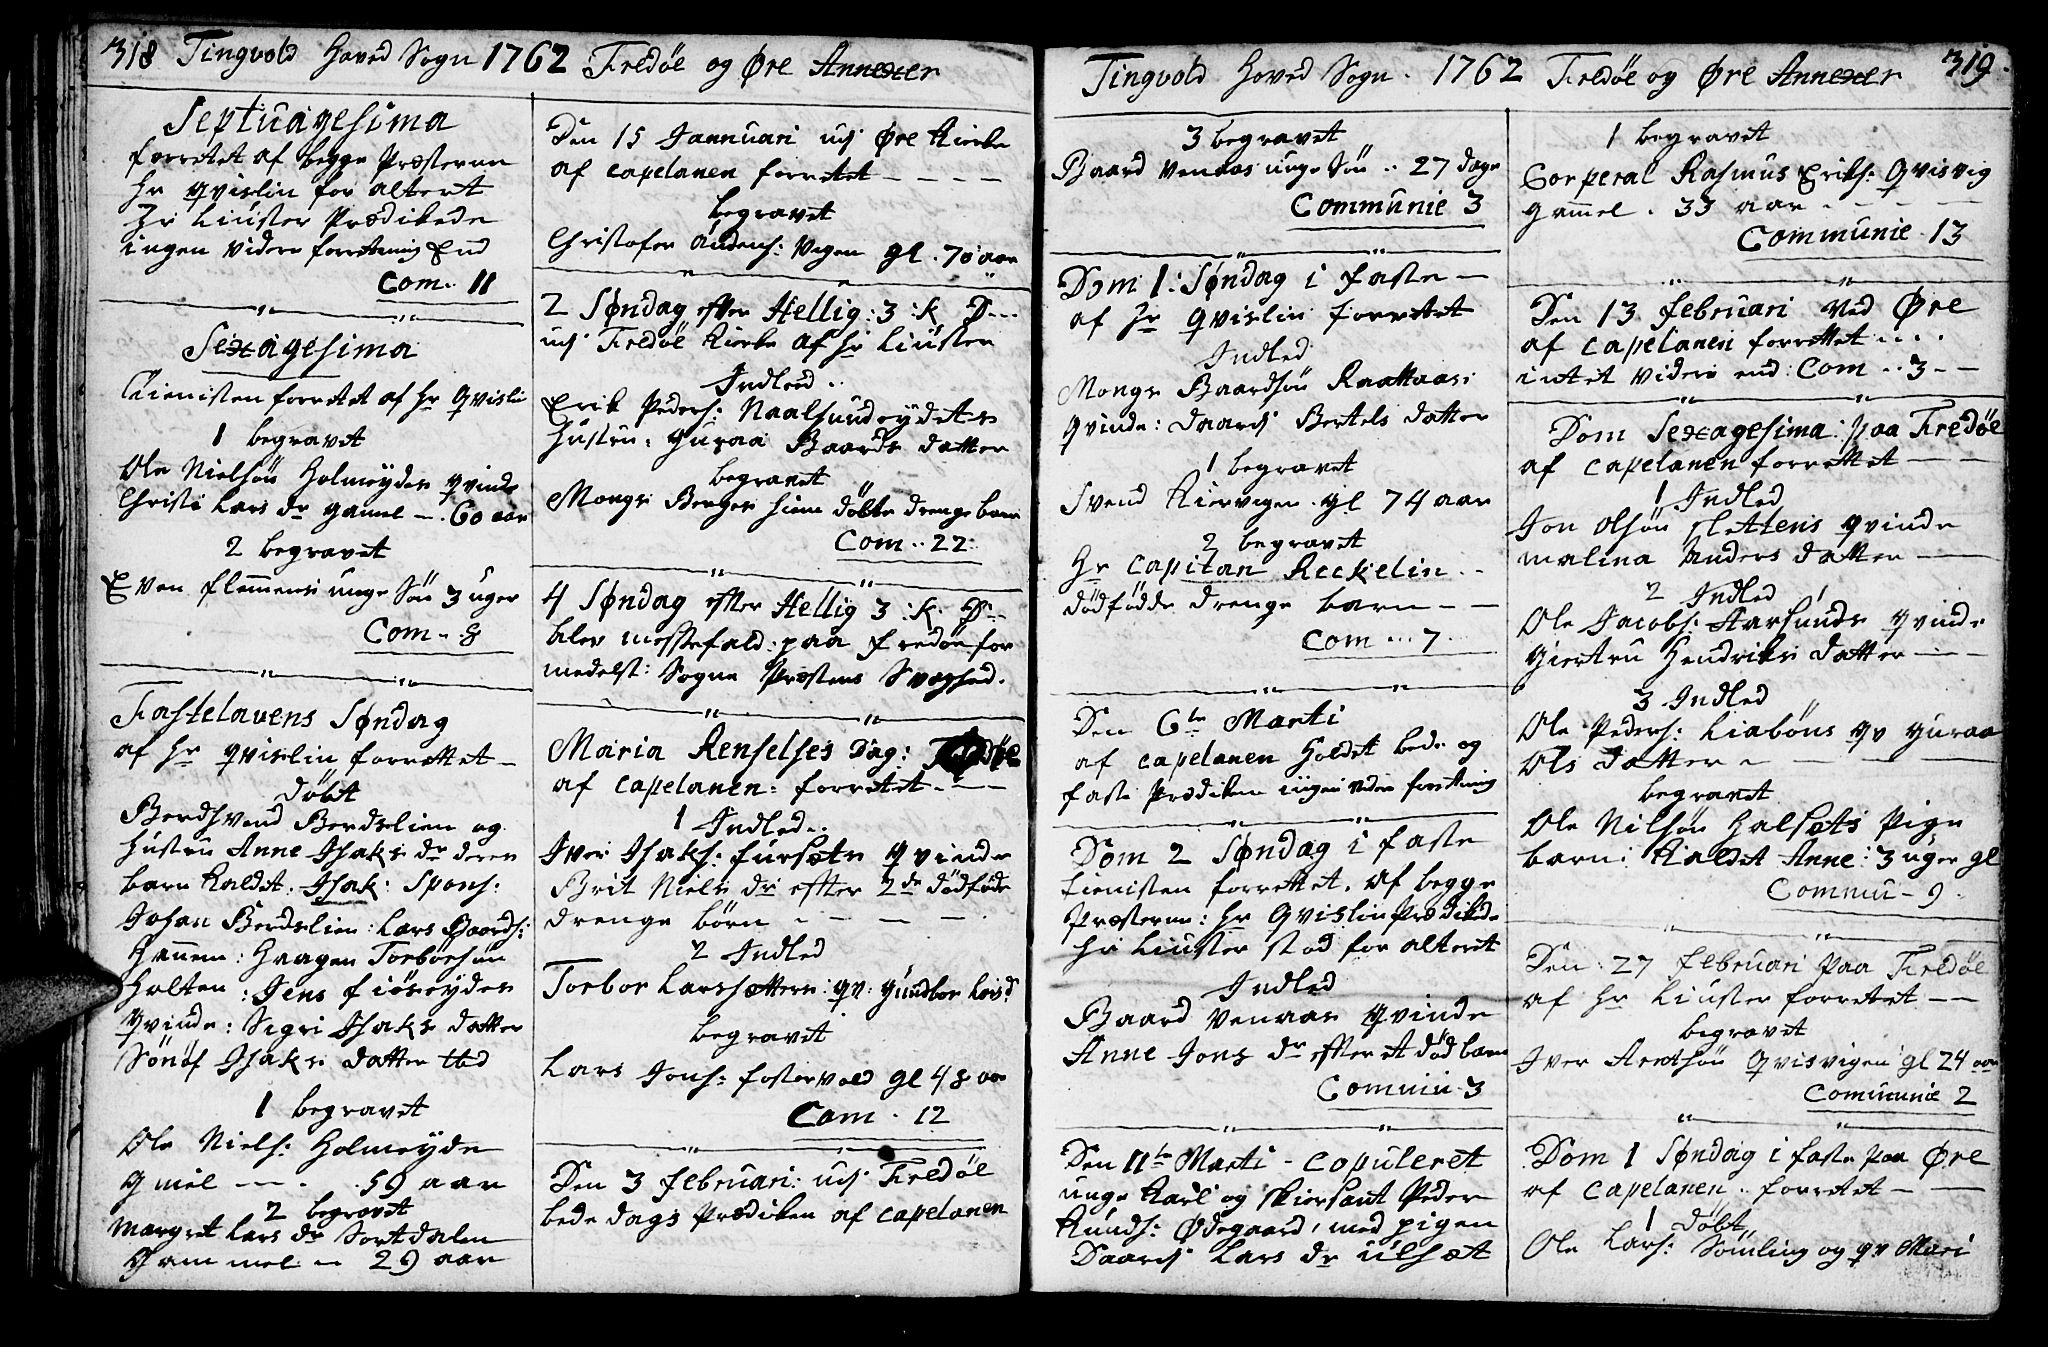 318 Tingvold Hoved Sogn 1762 Fredøe og Øre Annexer
Septuagesima
forrettet af begge Præsterne
Hr Qvislin for alteret
Hr Liuster Prædikede
ingen videre forretning End
Com. 11
Sexagesima
Tienisten forrettet af Hr Qvislin
1 begravet
Ole Nielsøn Holmeydes qvinde
Christi Lars dr gamel — 60 aar
2 begravet
Even flemmens unge Søn 3 uger
Com - 8
Fastelavens Søndag
af Hr qvislin forrettet —
døbt
Berdsvend Berdslien og
Hustru Anne Isaks dr deres
barn kaldet. Isak: Spons:
Johan Berdslien: Lars Baards:
Hannem: Haagen Torbørsøn
Holten: Jens fiøreydes
qvinde: Sigri Isaks datter
Sønøf Isaks datter ibd
1 begravet
Ole Niels: Holmeyde
gmel — . 59 aar
2 begravet
Margret Lars dr Sortdalen
Gammel — 29 aar
Den 15 Jannuari udj Øre Kirke
af capelanen forrettet — — — —
begravet
Christofer Andens: Vagen gl. 70 aar
2 Søndag efter Hellig: 3: K D...
udj Fredøe Kirke af Hr Liuster
Indled..
Erik Peders: Naalsundeydets
Hustru: Guraa Baards datter
begravet
Mongs Berges hiem døbte drengebarn
Com.. 22
4 Søndag efter Hellig 3: K. D..
blev messefald: paa fredøe for
medelst: Sogne Præstens Svaghed.
Maria Renselses Dag: Fredøe
af capelanen: forrettet — —
1 Indled..
Iver Isaks: fursæts qvinde
Brit Niels dr efter 2de dødføde
drenge børn — — — —
2 Indled
Torbor Larssetters: qv: Gundbor Larsd
begravet
Lars Jons: fostervold gl 48 aar
Com. 12
Den 3 februari: udj Fredøe
bede dags Prædiken af capelanen
Tingvold Hoved Sogn. 1762 Fredøe og Øre Annexer 319.
3 begravet
Baard Venaas unge Søn.. 27 dage
Communie 3
Dom 1: Søndag i faste —
af Hr Qvislin forrettet
Indled
Mongs Baardsøn Raattaasi
qvinde: Daardj Bertels datter
1 begravet
Svend Kiervigen. gl 74 aar
2 begravet
Hr Capitan Reckelin..
dødfødde drenge barn — —
Com ... 7
Den 6te Marti
af capelanen Holdet bede og
faste Prædiken ingen videre forretning
Dom 2 Søndag i faste
tienisten forrettet. af begge
Præsterne: Hr Qvislin Prædikede
Hr Liuster stod for alteret
Indled
Baard Venaas qvinde
Anne Jons dr efter et død barn
Commun 3
Den 11te Marti - Copuleret
unge Karl og skiersant Peder
Knuds: Ødegaard, med pigen
Daardj Lars dr Ulset
1 begravet
Corperal Rasmus Eriks: Qvisvig
gammel. 33 aar — — — —
Communie. 13
Den 13 februari ved Øre
af capelanen forrettet....
intet videre end: Com .. 3 - —
Dom Sexagesima: paa Fredöe
af capelanen forrettet — —
1 Indled
Jon Olsøn slettens qvinde
malina Anders datter —
2 Indled
Ole Jacobs: Aarsunds qvinde
Giertru Hendriks datter — —
3 Indled
Ole Peders: Liabøns qv guraa
Ols datter — — — —
begravet
Ole Nilsøn Halsets Pige
barn: kaldet Anne: 3 uger gl
Commu - 9.
Den: 27 februari paa Fredöe
af Hr Liuster forrettet — —
begravet
Iver Arentsøn Qvisvigen gl 24 aar
Communie 2
Dom 1 Søndag i faste paa Øre
af Capelanen.. forrettet — —
1 døbt
Ole Lars: Sømling og qv Mari